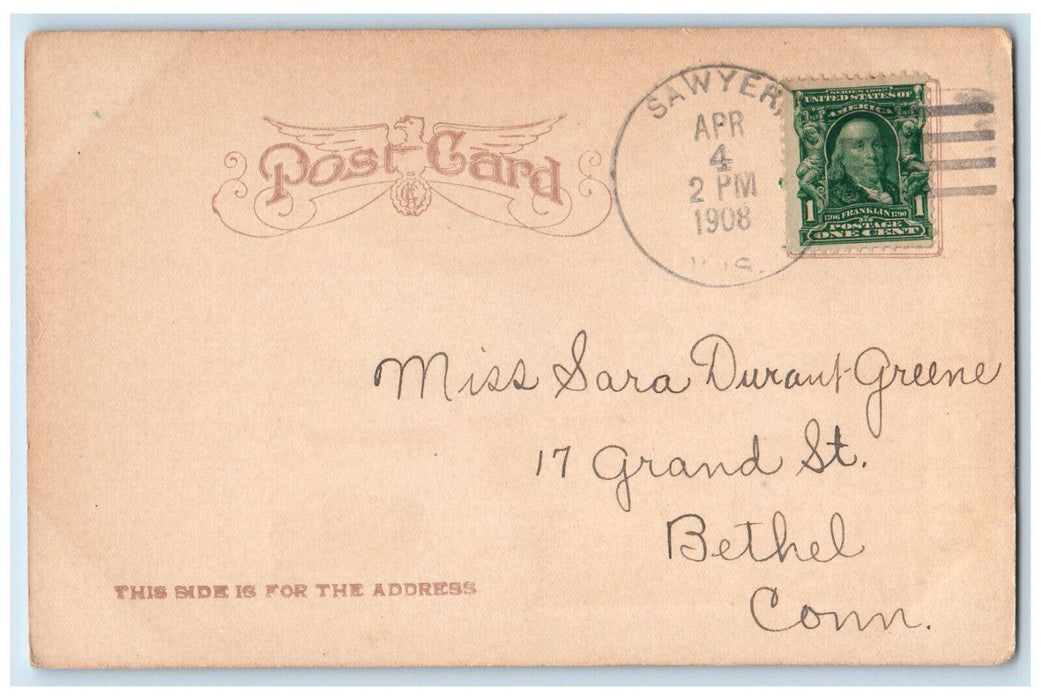 Post Card
SAWYER,
APR
4
2 PM
1908
WIS.
SERIES 1902
UNITED STATES OF
AMERICA
1 1706 FRANKLIN 1790 1
POSTAGE
ONE CENT
Miss Sara Durant Greene
17 Grand St.
Bethel
Conn.
THIS SIDE IS FOR THE ADDRESS